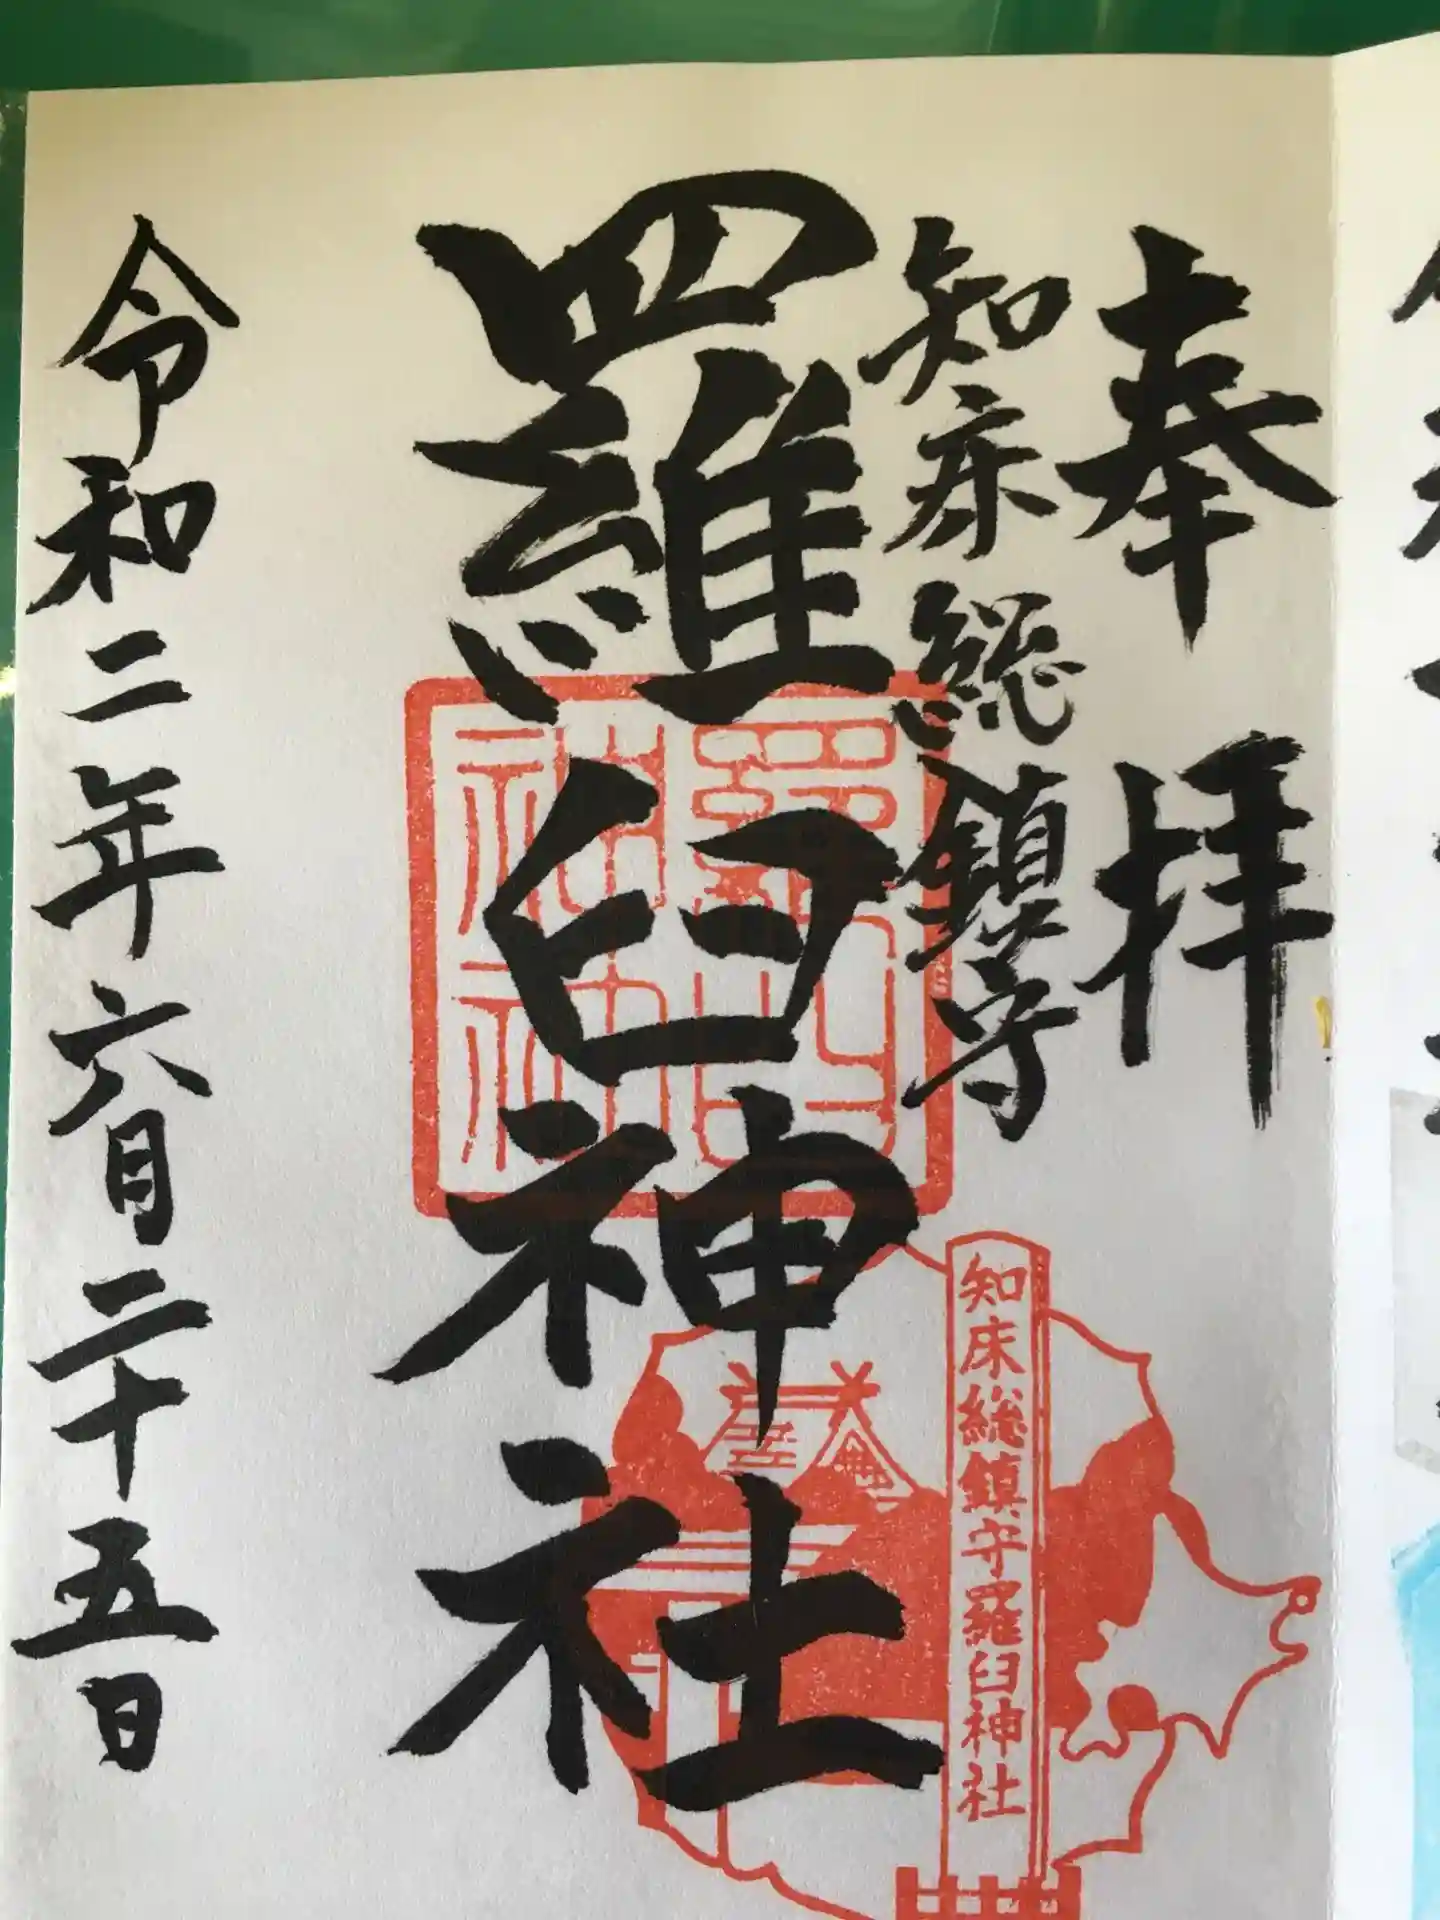 奉拝
知床総鎮守
羅臼神社
令和二年六月二十五日
羅臼神社
知床総鎮守羅臼神社